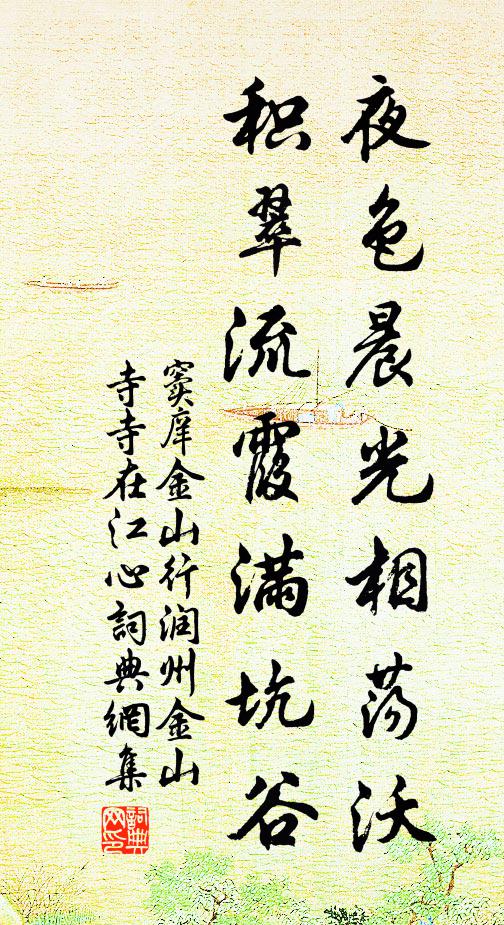 夜色晨光相荡沃
积翠流霞满坑谷
窦庠金山行润州金山
寺寺在江心詞典網集
詞典
网印